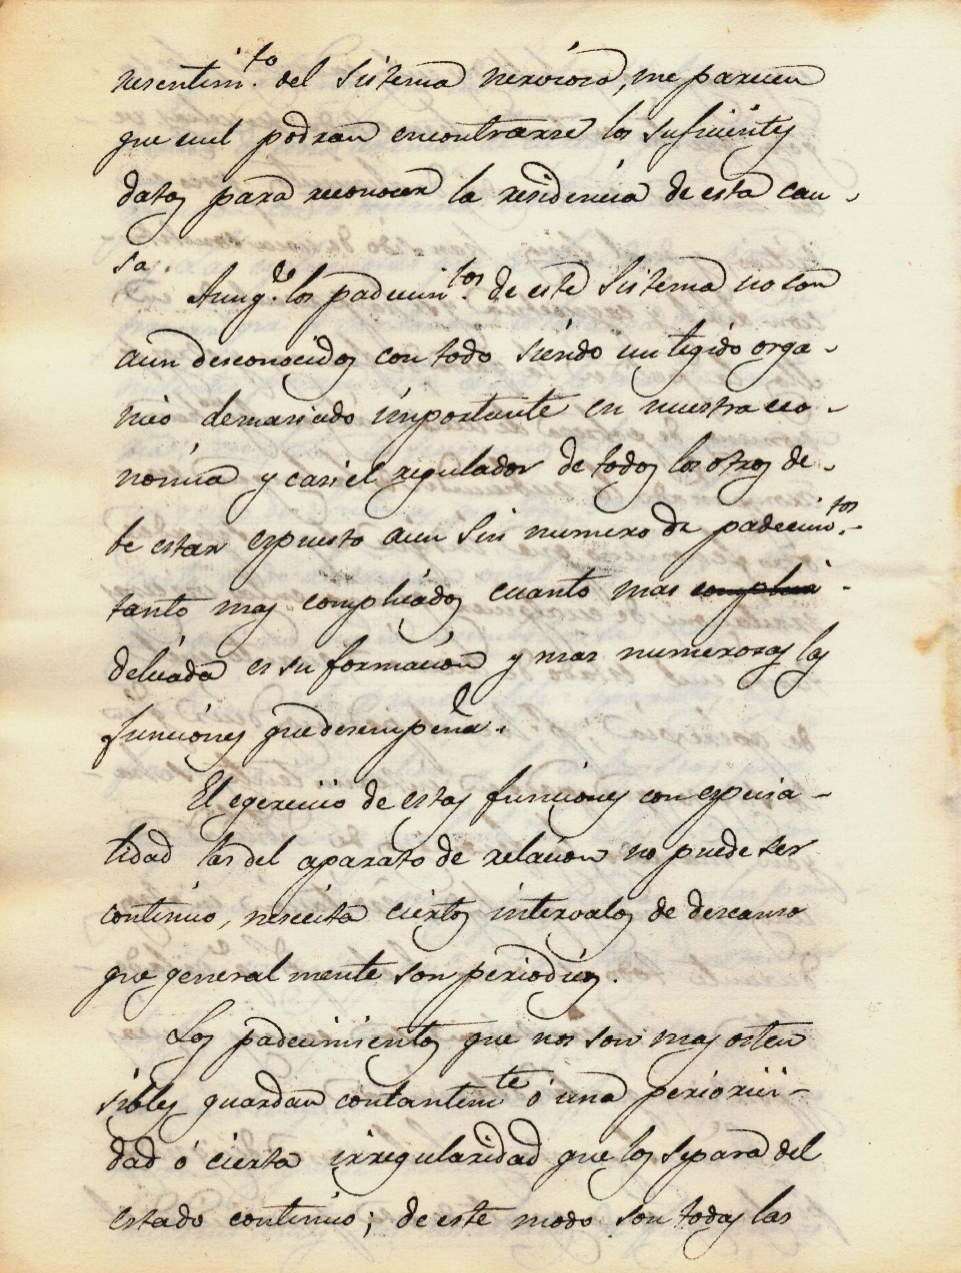 resentim.to del sistema nervioso, me parecen
que mil podran encontrarse los suficientes
datos para reconocer la residencia de esta cau-
sa.
Aunq.e los padecim.tos de este sistema no son
aun desconocidos con todo siendo un tegido orga-
nico demasiado importante en nuestra eco-
nomia y casi el regulador de todos los otros de-
be estar expuesto a un sin numero de padecim.tos
tanto mas complicados cuanto mas complica
delicada es su formacion y mas numerosas las
funciones que desempeña.
El egercicio de estas funciones con especia-
lidad las del aparato de relacion no puede ser
continuo, nesecita ciertos intervalos de descanso
que generalmente son periodicos.
Los padecimientos que nos son mas osten
sibles guardan contantem.te ó una periorici-
dad ó cierta irregularidad que los separa del
estado continuo; de este modo son todas las